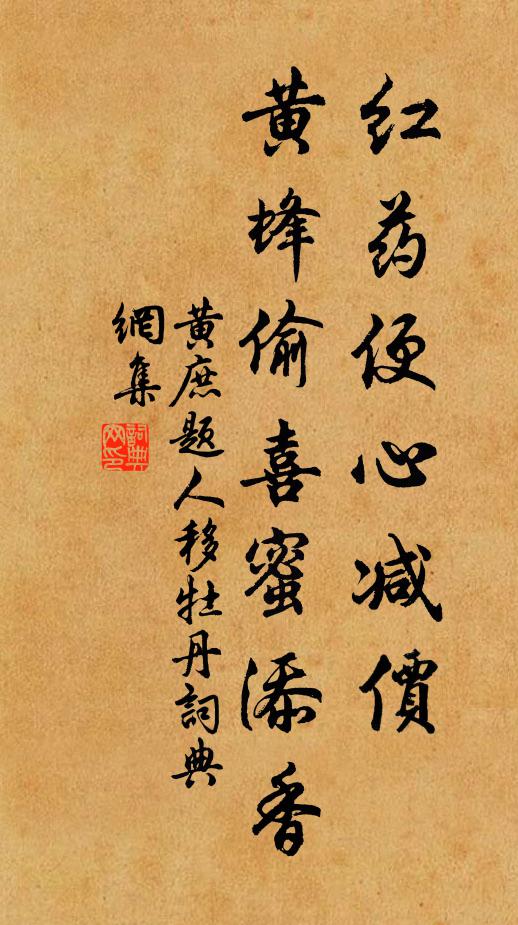 红药便心减價
黄蜂偷喜蜜添香
黄庶题人移牡丹詞典
網集
詞典
网印